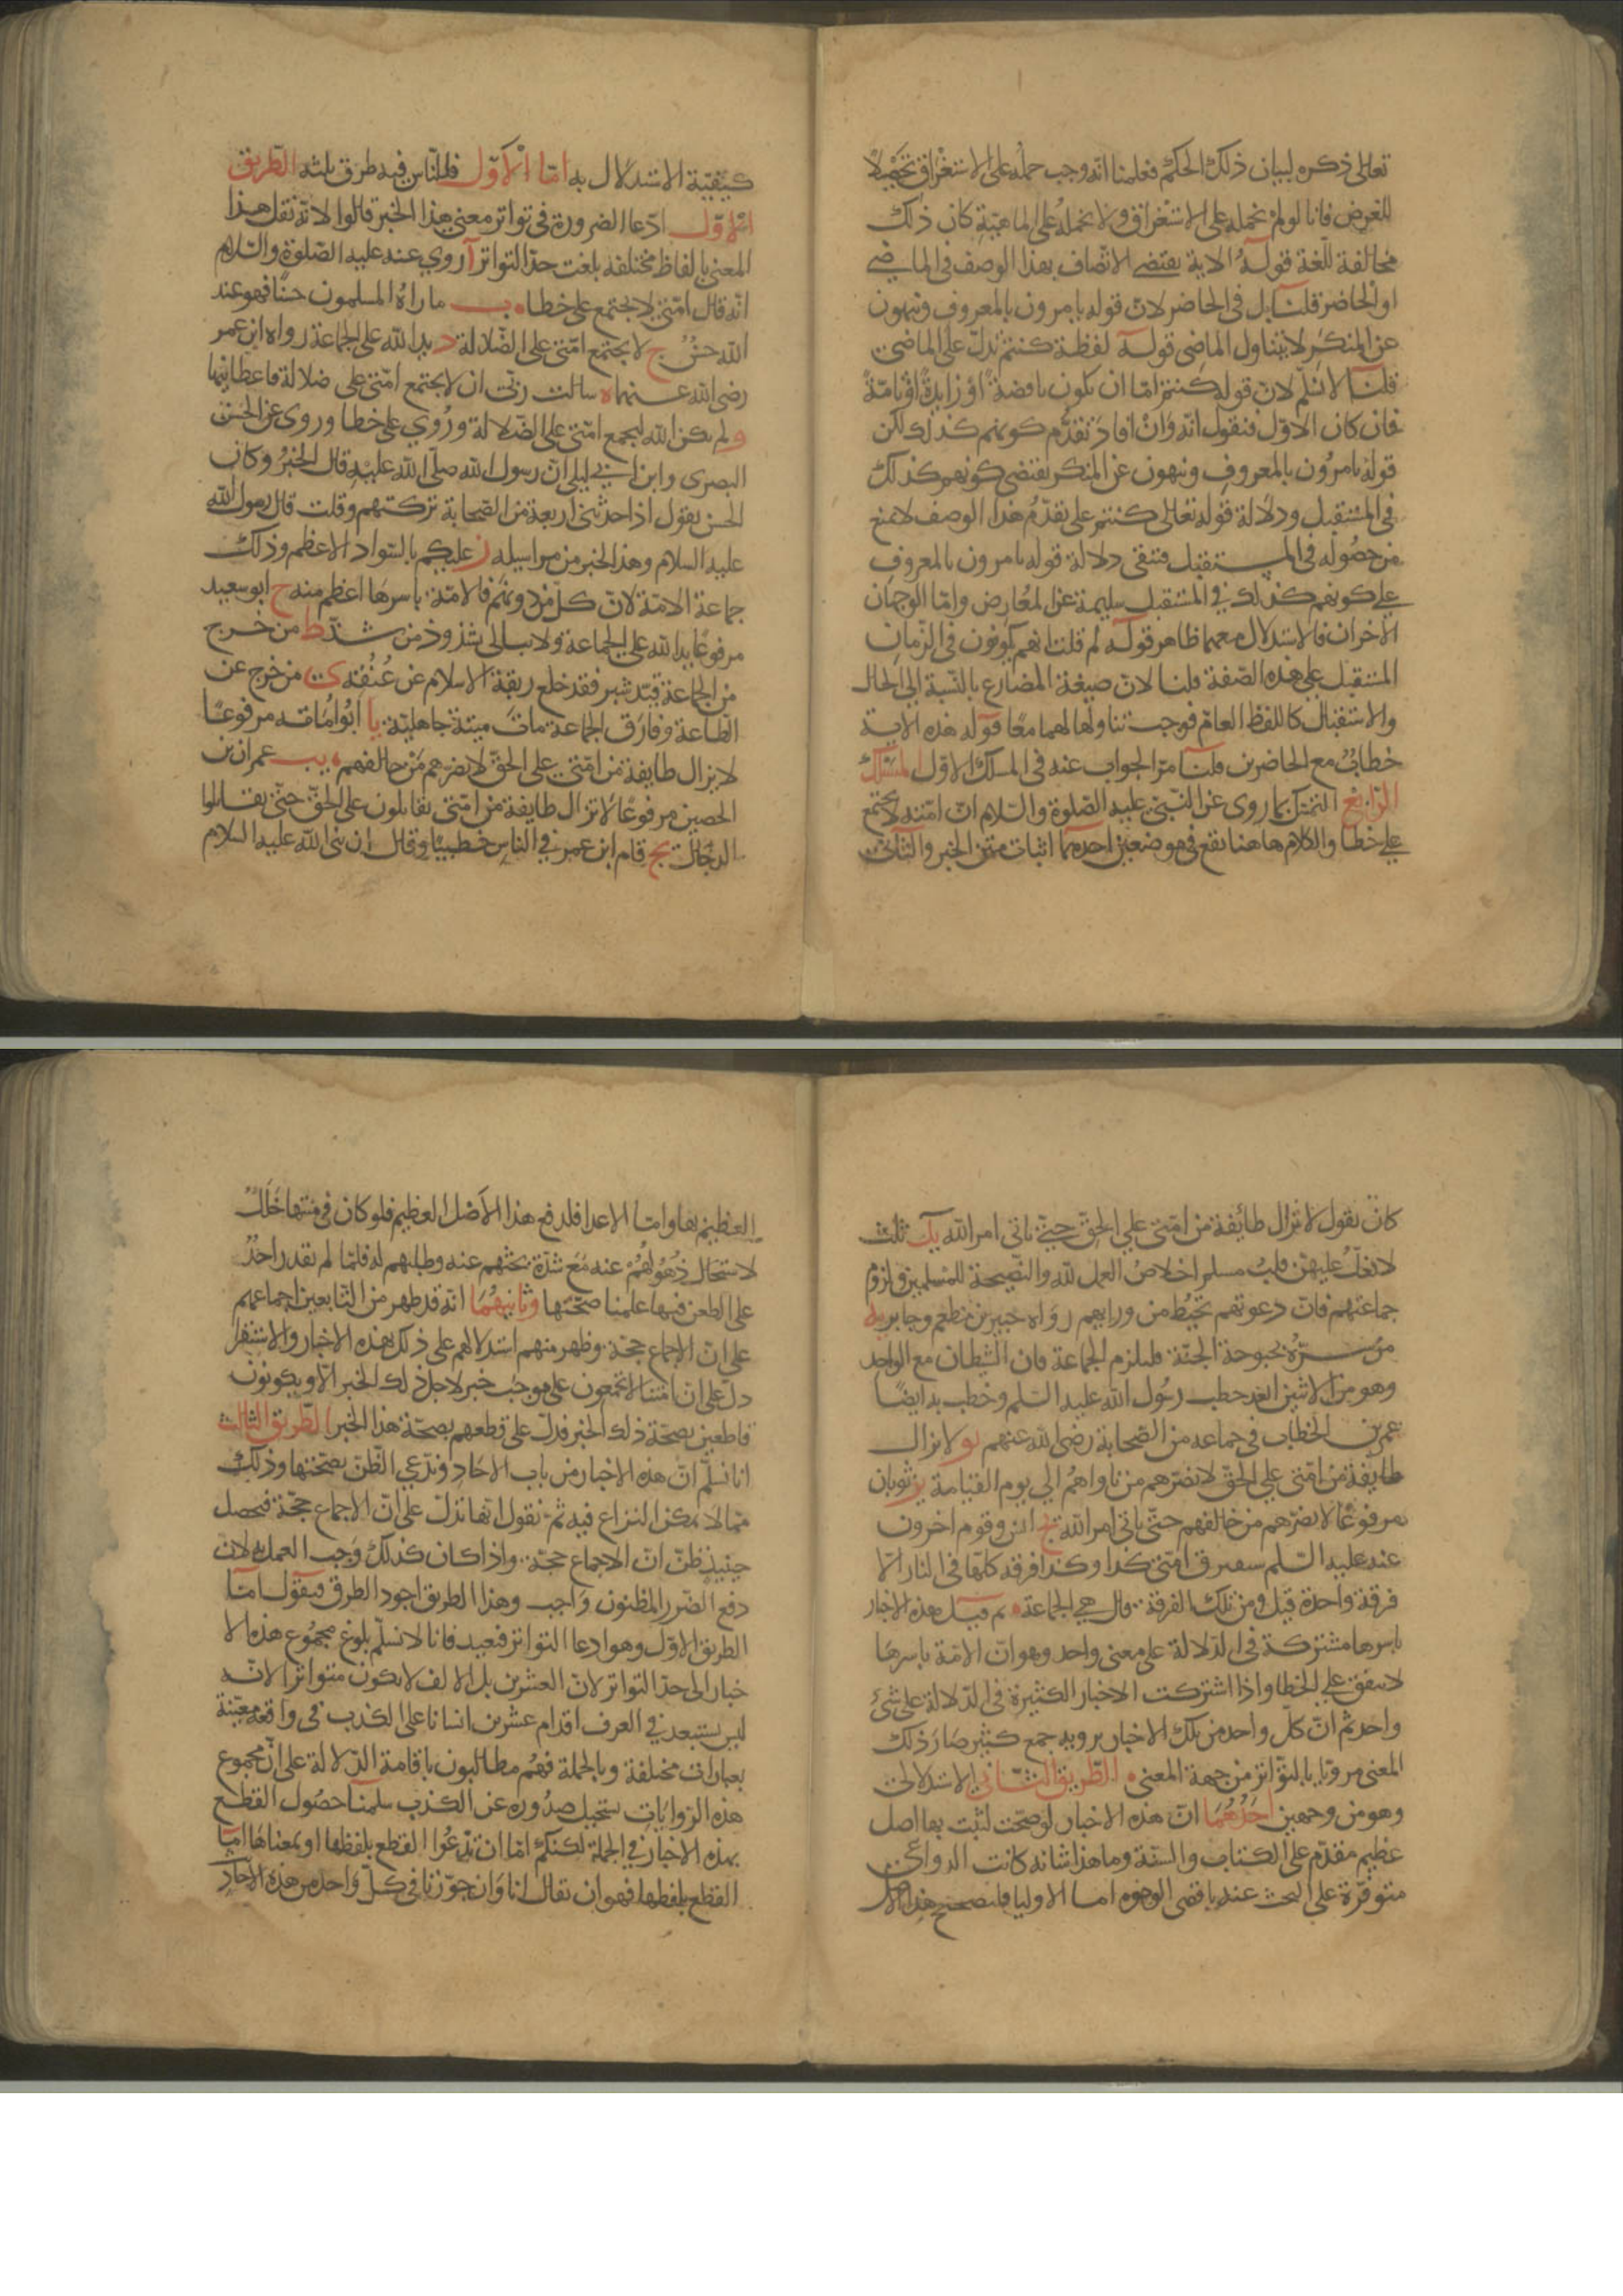 تعالى ذكره لبيان ذلك الحكم فعلمنا انه وجب حمله على الاستغراق تحصيلا
للغرض فانا لو لم نحمله على الاستغراق ولا نحمله على الماهية كان ذلك
مخالفة للغة قوله الاية يقتضي الاتصاف بهذا الوصف في الماضي
او الحاضر قلنا بل في الحاضر لان قوله يامرون بالمعروف وتنهون
عن المنكر لا يتناول الماضي قوله لفظة كنتم تدل على الماضي
قلنا لا نسلم لان قوله كنتم اما ان يكون ناقصة او زايدة او تامة
فان كان الاول فنقول انه وان افاد تقدم كونهم كذلك لكن
قوله تامرون بالمعروف وتنهون عن المنكر يقتضي كونهم كذلك
في المستقبل ودلالة قوله تعالى كنتم على تقدم هذا الوصف لا يمنع
من حصوله في المستقبل فتبقى دلالة قوله تامرون بالمعروف
على كونهم كذلك في المستقبل سليمة عن المعارض واما الوجهان
الاخران فالاستدلال معهما ظاهر قوله لم قلتم انهم يكونون في الزمان
المستقبل على هذه الصفة قلنا لان صيغة المضارع بالنسبة الى الحال
والاستقبال كاللفظ العام فوجب تناولها لهما معا قوله هذه الاية
خطاب مع الحاضرين قلنا مر الجواب عنه في المسلك الاول المسلك
الرابع التمسك بما روى عن النبي عليه الصلوة والسلام ان امته لا تجتمع
على خطا والكلام هاهنا يقع في موضعين احدهما اثبات متن الخبر والثاني
كيفية الاستدلال به اما الاول فللناس فيه طرق ثلثه الطريق
الاول ادعا الضرورة في تواتر معنى هذا الخبر قالوا لانه نقل هذا
المعنى بالفاظ مختلفه بلغت حد التواتر آ روي عنه عليه الصلوة والسلام
انه قال امتي لا تجتمع على خطا ب ما راه المسلمون حسنا فهو عند
الله حسن ج لا يجتمع امتي على الضلالة د يد الله على الجماعة رواه ابن عمر
رضي الله عنهما ه سالت ربي ان لا يجتمع امتي على ضلالة فاعطانيها
و لم يكن الله ليجمع امتي على الضلالة وروي على خطا وروى عن الحسن
البصرى وابن ابي ليلى ان رسول الله صلى الله عليه قال الخبر وكان
الحسن يقول اذا حدثني اربعة من الصحابة تركتهم وقلت قال رسول الله
عليه السلام وهذا الخبر من مراسيله ز عليكم بالسواد الاعظم وذلك
جماعة الامة لان كل من دونهم فالامة باسرها اعظم منه ح ابو سعيد
مرفوعا يد الله على الجماعة ولا يبالى بشذوذ من شذ ط من خرج
من الجماعة قيد شبر فقد خلع ربقة الاسلام عن عنقه ى من خرج عن
الطاعة وفارق الجماعة مات ميتة جاهلية يا ابو امامه مرفوعا
لا يزال طايفة من امتي على الحق لا يضرهم من خالفهم يب عمران بن
الحصين مرفوعا لا تزال طايفة من امتي يقاتلون على الحق حتى يقاتلوا
الدجال يج قام ابن عمر في الناس خطيبا وقال ان نبي الله عليه السلام
كان يقول لا تزال طائفة من امتي على الحق حتى ياتي امر الله يد ثلث
لا يغل عليهن قلب مسلم اخلاص العمل لله والنصيحة للمسلمين ولزوم
جماعتهم فان دعوتهم تحيط من ورايهم رواه جبير بن مطعم وجابر يه
من سره بحبوحة الجنة فليلزم الجماعة فان الشيطان مع الواحد
وهو من الاثنين ابعد خطب رسول الله عليه السلم وخطب به ايضا
عمر بن الخطاب في جماعه من الصحابة رضي الله عنهم يو لا يزال
طايفة من امتي على الحق لا يضرهم من ناواهم الى يوم القيامة يز ثوبان
مرفوعا لا يضرهم من خالفهم حتى ياتي امر الله يح انس وقوم اخرون
عنه عليه السلم ستفترق امتي كذا وكذا فرقه كلها في النار الا
فرقة واحدة قيل ومن تلك الفرقة قال هي الجماعة ثم قيل هذه الاخبار
باسرها مشتركة في الدلالة على معنى واحد وهو ان الامة باسرها
لا تتفق على الخطا واذا اشتركت الاخبار الكثيرة في الدلالة على شئ
واحد ثم ان كل واحد من تلك الاخبار يرويه جمع كثير صار ذلك
المعنى مرويا بالتواتر من جهة المعنى الطريق الثاني الاستدلال
وهو من وجهين احدهما ان هذه الاخبار لو صحت لثبت بها اصل
عظيم مقدم على الكتاب والسنة وما هذا شانه كانت الدواعي
متوفرة على البحث عنه باقصى الوجوه اما الاوليا فلتصحيح هذا الاصل
العظيم بها واما الاعدا فلدفع هذا الاصل العظيم فلو كان في متنها خلل
لاستحال ذهولهم عنه مع شدة بحثهم عنه وطلبهم له فلما لم يقدر احد
على الطعن فيها علمنا صحتها وثانيهما انه قد ظهر من التابعين اجماعهم
على ان الاجماع حجة وظهر منهم استدلالهم على ذلك بهذه الاخبار والاستقرا
دل على ان امتنا لا تجمعون على موجب خبر لاجل ذلك الخبر الا ويكونون
قاطعين بصحة ذلك الخبر فدل على قطعهم بصحة هذا الخبر الطريق الثالث
انا نسلم ان هذه الاخبار من باب الاحاد وندعي الظن بصحتها وذلك
مما لا يمكن النزاع فيه ثم نقول انها تدل على ان الاجماع حجة فيحصل
حينيذ ظن ان الاجماع حجة واذا كان كذلك وجب العمل به لان
دفع الضرر المظنون واجب وهذا الطريق اجود الطرق فيقول اما
الطريق الاول وهو ادعا التواتر فبعيد فانا لا نسلم بلوغ مجموع هذه الا
خبار الى حد التواتر لان العشرين بل الالف لا يكون متواترا لانه
ليس يستبعد في العرف اقدام عشرين انسانا على الكذب في واقعه معينة
بعبارات مختلفة وبالجملة فهم مطالبون باقامة الدلالة على ان مجموع
هذه الروايات يستحيل صدوره عن الكذب سلمنا حصول القطع
بهذه الاخبار في الجملة لكنكم اما ان تدعوا القطع بلفظها او بمعناها اما
القطع بلفظها فهو ان يقال انا وان جوزنا في كل واحد من هذه الاحاد